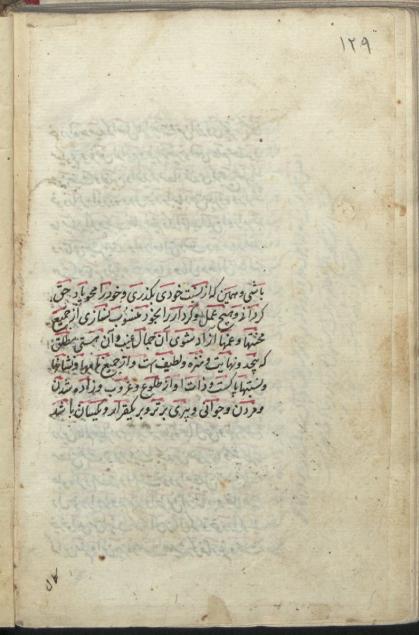 ۱۲۹
باشی و همین که از نسبت خودی بگذری و خود را محو یاد حق
کردانی و هیچ عمل و کردار را بخود منسوب نسازی از جمیع
محنتها و غمها آزاد شوی آن جمال غیب و آن هستی مطلق
که بیحد و نهایت و منزه و لطیف است و از جمیع نامها و نشانها
و نسبتها پاکست و ذات او از طلوع و غروب و زاده شدن
و مردن و جوانی و پیری برتر و بر یکقرار و یکسان باشد